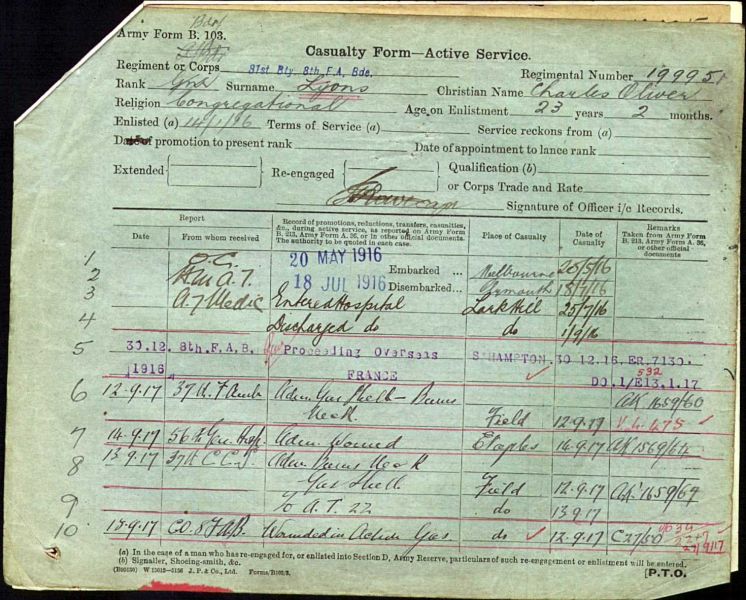 Bde/
Army Form B. 103.
Casualty Form—Active Service.
Regiment or Corps 31st Bty. 8th. F.A. Bde. Regimental Number 19995
Rank Gnr Surname Lyons Christian Name Charles Oliver
Religion Congregational Age on Enlistment 23 years 2 months.
Enlisted (a) 14/1/16 Terms of Service (a) Service reckons from (a)
Date of promotion to present rank Date of appointment to lance rank
Extended Re-engaged Qualification (b)
or Corps Trade and Rate
Signature of Officer i/c Records.
Report
Date From whom received
Record of promotions, reductions, transfers, casualties,
&c., during active service, as reported on Army Form
B. 213, Army Form A. 36, or in other official documents.
The authority to be quoted in each case.
Place of Casualty
Date of
Casualty
Remarks
Taken from Army Form
B. 213, Army Form A. 36,
or other official
documents
1 O.C. 20 MAY 1916 Embarked ... Melbourne 20/5/16
2 18 JUL 1916 Disembarked... 18/7/16
3 A7 Medic Entered Hospital Lark Hill 25/7/16
4 Discharged do do 1/9/16
5 30.12. 8th. F.A.B. Proceeding Overseas S'HAMPTON. 30 12.16. ER.7130.
1916 FRANCE 532 DO.1/E13.1.17
6 12-9-17 37 A. F Amb Adm Gas Shell - Burns AK 1659/60
Neck Field 12-9-17
7 14-9-17 56th Gen Hosp Adm Wound Etaples 14-9-17
8 13-9-17 37 C.C.S. Adm Burns Neck
Gas Shell Field 12.9.17
9 to A.T. 22 do 13 9 17
10 CO. 8 F.A.B. Wounded in Action Gas do 12.9.17
(a) In the case of a man who has re-engaged for, or enlisted into Section D, Army Reserve, particulars of such re-engagement or enlistment will be entered.
(b) Signaller, Shoeing-smith, &c.
J. P. & Co., Ltd. Forms/B103/3. [P.T.O.